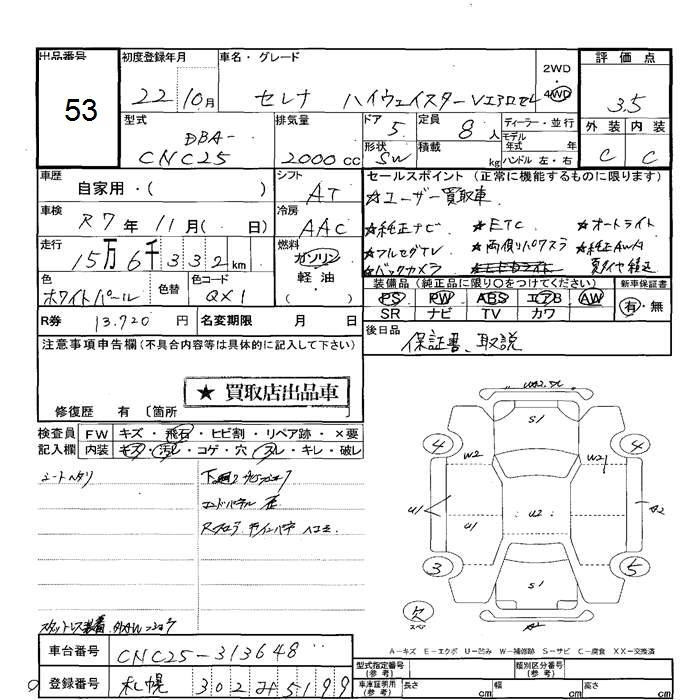 出品番号 初度登録年月 車名・グレード 2WD 評価点
53 22 10月 セレナ ハイウェイスター 4WD 3.5
型式 排気量 ドア 定員 ディーラー・並行 外装 内装
DBA- 5 8人 モデル年式 年
CNC25 2000cc 形状 SW 積載 kg ハンドル 左・右 C C
車歴 シフト セールスポイント(正常に機能するものに限ります)
自家用・( ) AT ★ユーザー買取車
車検 冷房
R7年11月( 日) AAC ★純正ナビ ★ETC ★オートライト
走行 燃料 ★フルセグTV ★両側パワスラ ★純正AW
15万6千332km ガソリン ★バックカメラ
色 色替 色コード 軽油 装備品(純正品に限り○をつけてください) 新車保証書
ホワイトパール QX1 ・( ) PS PW ABS エアB AW 有・無
SR ナビ TV カワ
R券 13,720円 名変期限 月 日 後日品
注意事項申告欄(不具合内容等は具体的に記入して下さい) 保証書、取説
★買取店出品車
修復歴 有〔箇所
検査員 FW キズ・飛石・ヒビ割・リペア跡・×要
記入欄 内装 キズ・汚レ・コゲ・穴・スレ・キレ・破レ
シートヘタリ
エンドパネル 歪
S1
4 W2 W2 4
U1 U1 U2 A2
3 S1 5
欠
スペア A2
A-キズ E-エクボ U-凹み W-補修跡 S-サビ C-腐食 XX-交換済
車台番号 CNC25-313648 型式指定番号(参考) 類別区分番号(参考)
登録番号 札幌 302 み 5199 車庫証明用(参考) 長さ cm 幅 cm 高さ cm